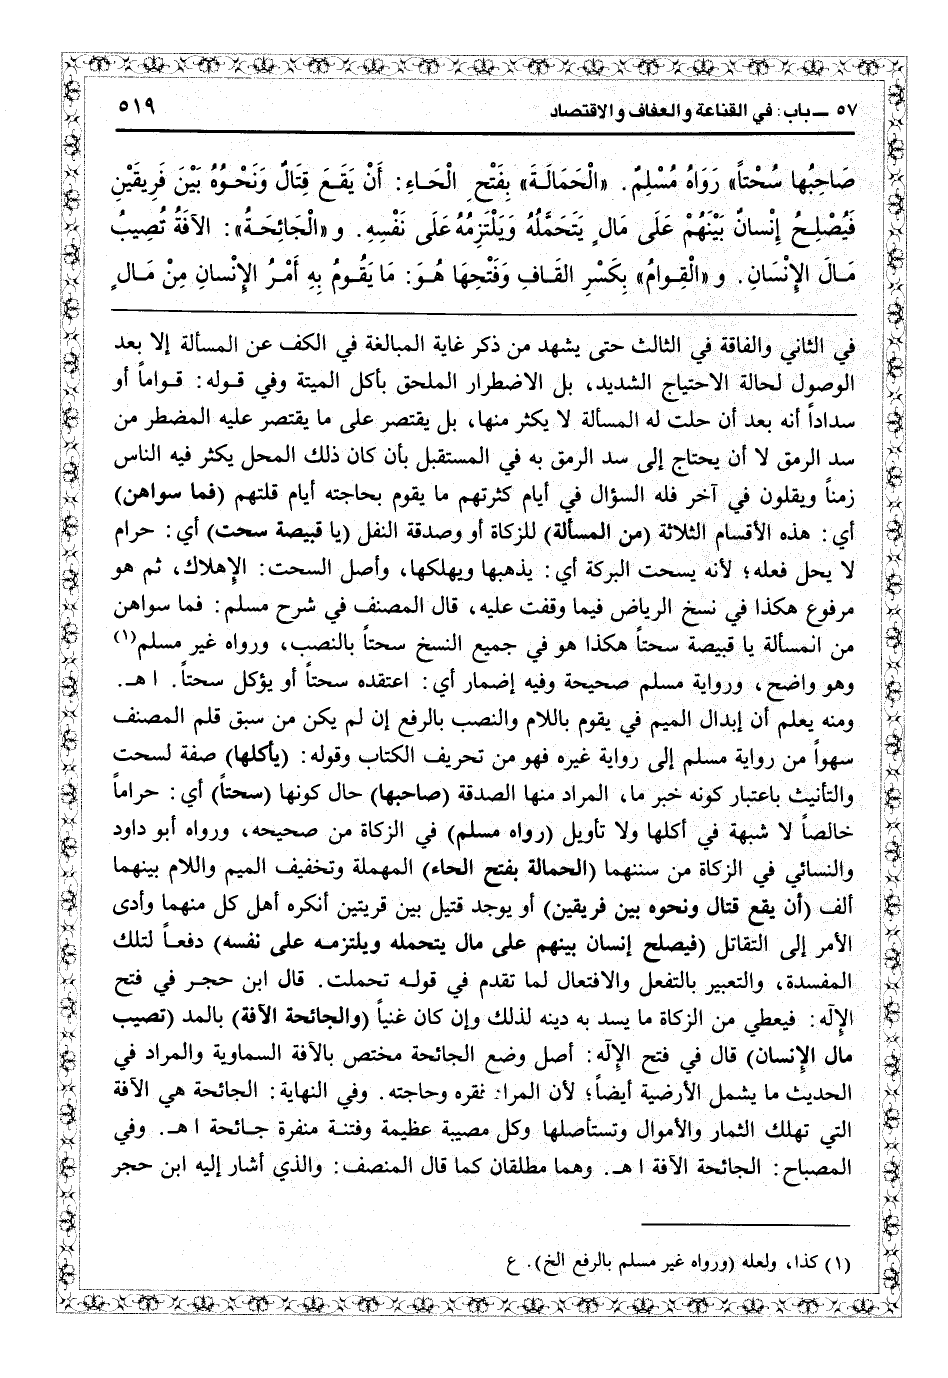 ٥٧ ــ باب: في القناعة والعفاف والاقتصاد ٥١٩
صَاحِبُها سُحْتاً» رَوَاهُ مُسْلِمٌ. «الْحَمَالَةَ» بِفَتْحِ الْحَاءِ: أَنْ يَقَعَ قِتَالٌ وَنَحْوُهُ بَيْنَ فَرِيقَيْنِ
فَيُصْلِحُ إِنْسانٌ بَيْنَهُمْ عَلَى مَالٍ يَتَحَمَّلُهُ وَيَلْتَزِمُهُ عَلَى نَفْسِهِ. و «الْجَائِحَةُ»: الآفَةُ تُصِيبُ
مَالَ الإِنْسَانِ. و «الْقِوامُ» بِكَسْرِ القَافِ وَفَتْحِهَا هُوَ: مَا يَقُومُ بِهِ أَمْرُ الإِنْسانِ مِنْ مَالٍ
في الثاني والفاقة في الثالث حتى يشهد من ذكر غاية المبالغة في الكف عن المسألة إلا بعد
الوصول لحالة الاحتياج الشديد، بل الاضطرار الملحق بأكل الميتة وفي قوله: قواماً أو
سداداً أنه بعد أن حلت له المسألة لا يكثر منها، بل يقتصر على ما يقتصر عليه المضطر من
سد الرمق لا أن يحتاج إلى سد الرمق به في المستقبل بأن كان ذلك المحل يكثر فيه الناس
زمناً ويقلون في آخر فله السؤال في أيام كثرتهم ما يقوم بحاجته أيام قلتهم (فما سواهن)
أي: هذه الأقسام الثلاثة (من المسألة) للزكاة أو وصدقة النفل (يا قبيصة سحت) أي: حرام
لا يحل فعله؛ لأنه يسحت البركة أي: يذهبها ويهلكها، وأصل السحت: الإِهلاك، ثم هو
مرفوع هكذا في نسخ الرياض فيما وقفت عليه، قال المصنف في شرح مسلم: فما سواهن
من المسألة يا قبيصة سحتاً هكذا هو في جميع النسخ سحتاً بالنصب، ورواه غير مسلم(١)
وهو واضح، ورواية مسلم صحيحة وفيه إضمار أي: اعتقده سحتاً أو يؤكل سحتاً. اهـ.
ومنه يعلم أن إبدال الميم في يقوم باللام والنصب بالرفع إن لم يكن من سبق قلم المصنف
سهواً من رواية مسلم إلى رواية غيره فهو من تحريف الكتاب وقوله: (يأكلها) صفة لسحت
والتأنيث باعتبار كونه خبر ما، المراد منها الصدقة (صاحبها) حال كونها (سحتاً) أي: حراماً
خالصاً لا شبهة في أكلها ولا تأويل (رواه مسلم) في الزكاة من صحيحه، ورواه أبو داود
والنسائي في الزكاة من سننهما (الحمالة بفتح الحاء) المهملة وتخفيف الميم واللام بينهما
ألف (أن يقع قتال ونحوه بين فريقين) أو يوجد قتيل بين قريتين أنكره أهل كل منهما وأدى
الأمر إلى التقاتل (فيصلح إنسان بينهم على مال يتحمله ويلتزمه على نفسه) دفعاً لتلك
المفسدة، والتعبير بالتفعل والافتعال لما تقدم في قوله تحملت. قال ابن حجر في فتح
الإِلٰه: فيعطي من الزكاة ما يسد به دينه لذلك وإن كان غنياً (والجائحة الآفة) بالمد (تصيب
مال الإِنسان) قال في فتح الإِلٰه: أصل وضع الجائحة مختص بالآفة السماوية والمراد في
الحديث ما يشمل الأرضية أيضاً؛ لأن المراد نقره وحاجته. وفي النهاية: الجائحة هي الآفة
التي تهلك الثمار والأموال وتستأصلها وكل مصيبة عظيمة وفتنة منفرة جائحة اهـ. وفي
المصباح: الجائحة الآفة اهـ. وهما مطلقان كما قال المنصف: والذي أشار إليه ابن حجر
(١) كذا، ولعله (ورواه غير مسلم بالرفع الخ). ع